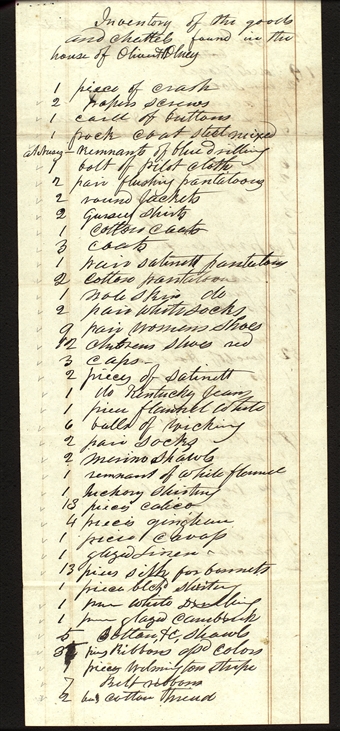 Inventory of the goods
and chattels found in the
house of Oliver Olney
1 piece of crash
2 papers screws
1 card of buttons
1 frock coat steel mixed
remnants of blue drilling
1 bolt of Pilot cloth
2 pair flushing pantaloons
2 round Jackets
2 Gursey Shirts
1 Cotton Coat
3 Coats
1 pair satinett pantaloons
2 Cotton pantaloon
1 mole skin do
2 pair white socks
9 pair womens shoes
12 childrens shoes red
3 Caps
2 pieces of satinett
1 do Kentucky Jeans
1 piece flannel white
6 balls of wicking
2 pair socks
2 merino shawls
1 remnant of white flannel
1 hickory shirting
13 pieces calico
4 pieces gingham
1 piece
1 glazed linen
13 pieces silk for bonnets
1 piece blchd shirting
1 piece white Drilling
1 piece glazed Cambrick
5 Cotton &c, shawls
pieces Ribbons assd colors
1 pieces Wilmington stripe
7 Belt ribbons
2 cotton thread